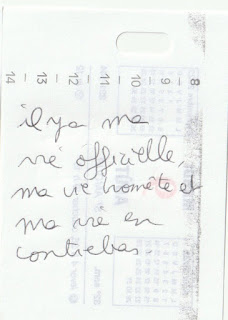 8 – 9 – 10 – 11 – 12 – 13 – 14
il y a ma
vie officielle,
ma vie honnête et
ma vie en
contrebas.